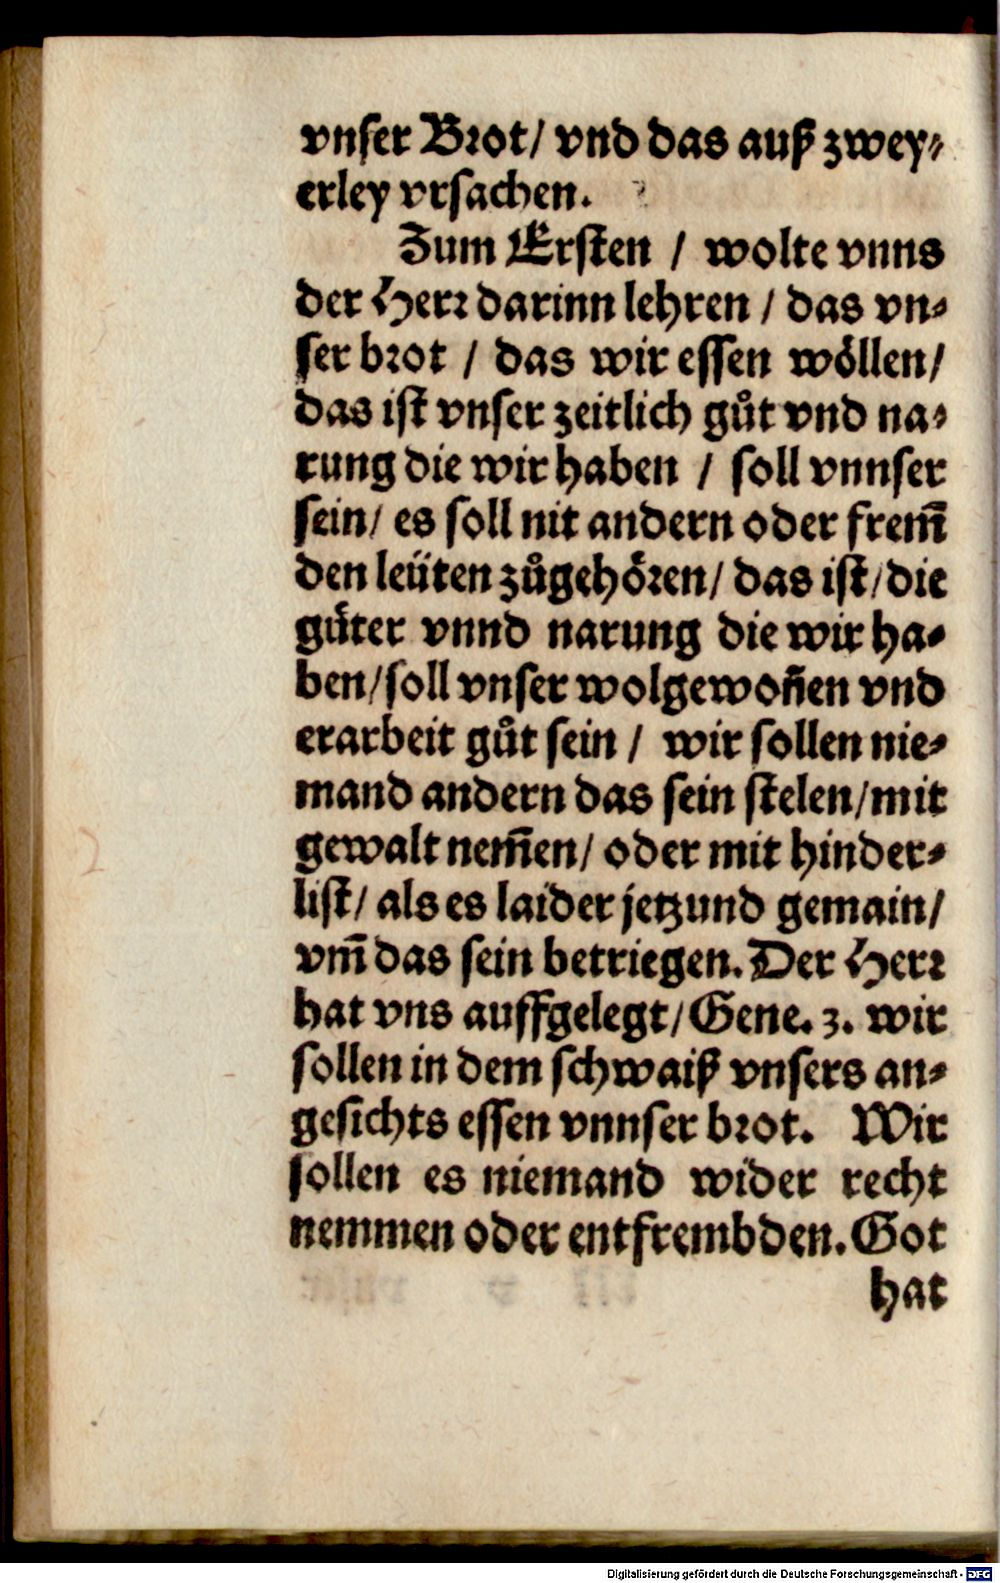 vnser Brot/ vnd das auß zwey⸗
erley vrsachen.
Zum Ersten / wolte vnns
der Herr darinn lehren / das vn⸗
ser brot / das wir essen wöllen/
das ist vnser zeitlich gůt vnd na⸗
rung die wir haben / soll vnnser
sein/ es soll nit andern oder frem̃
den leüten zůgehören/ das ist/ die
gůter vnnd narung die wir ha⸗
ben/ soll vnser wolgewoñen vnd
erarbeit gůt sein / wir sollen nie⸗
mand andern das sein stelen/ mit
gewalt nem̃en/ oder mit hinder⸗
list/ als es laider jetzund gemain/
vm̃ das sein betriegen. Der Herr
hat vns auffgelegt/ Gene. 3. wir
sollen in dem schwaiß vnsers an⸗
gesichts essen vnnser brot. Wir
sollen es niemand wider recht
nemmen oder entfrembden. Got
hat
Digitalisierung gefördert durch die Deutsche Forschungsgemeinschaft - DFG